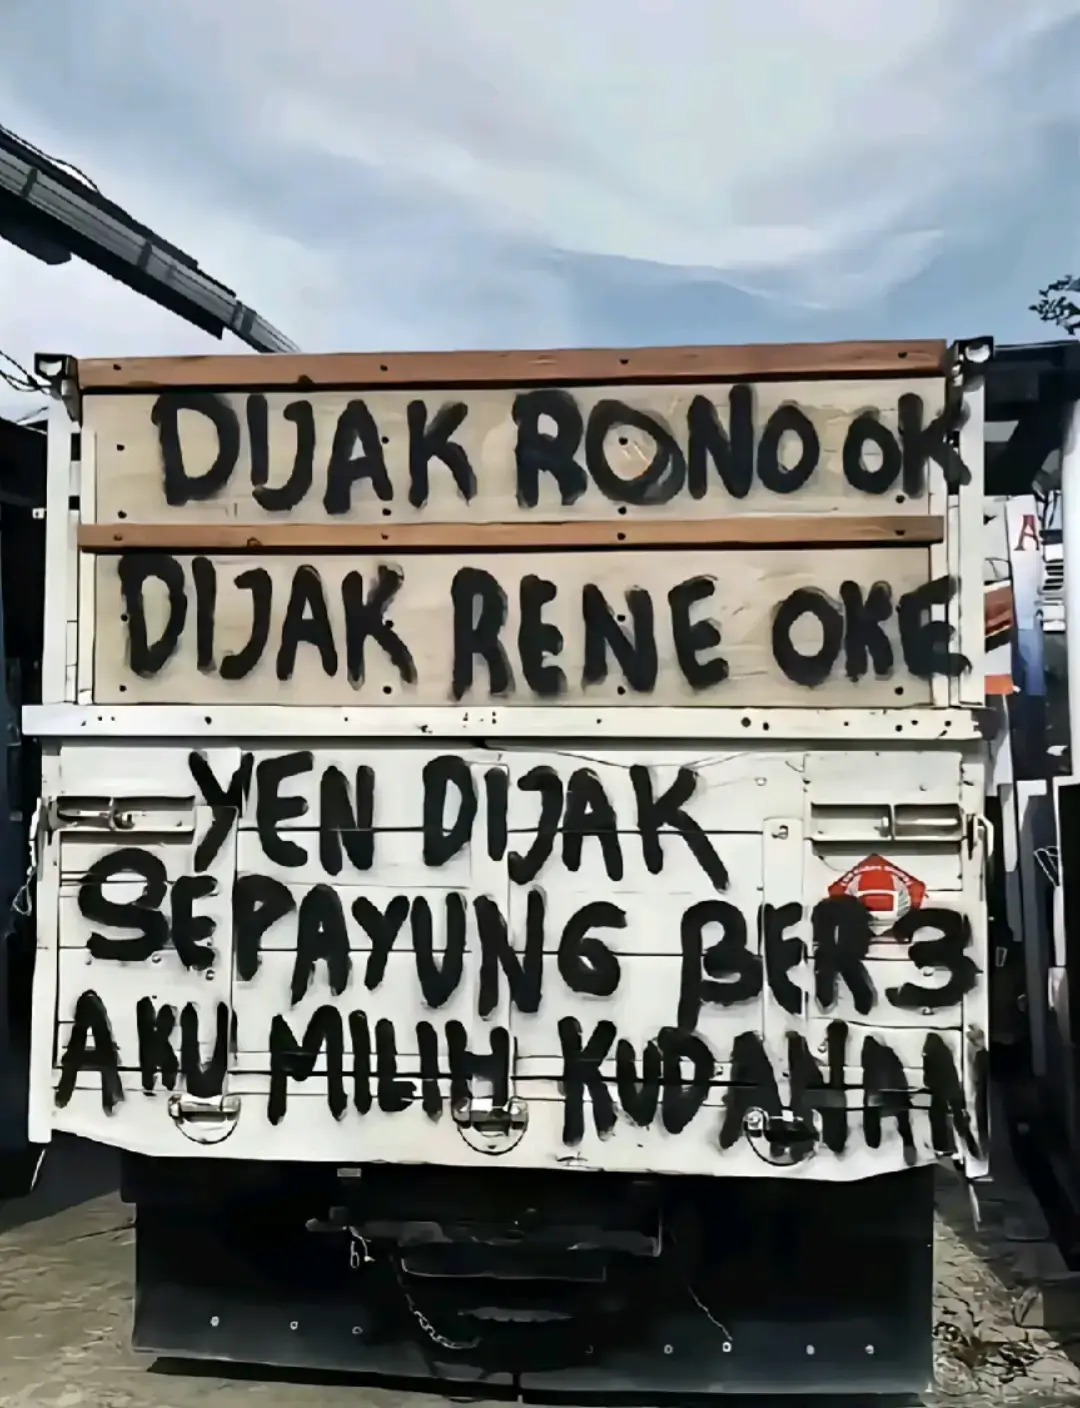 DIJAK RONO OK
DIJAK RENE OKE
YEN DIJAK
SEPAYUNG BER3
AKU MILIH KUDANAN
A